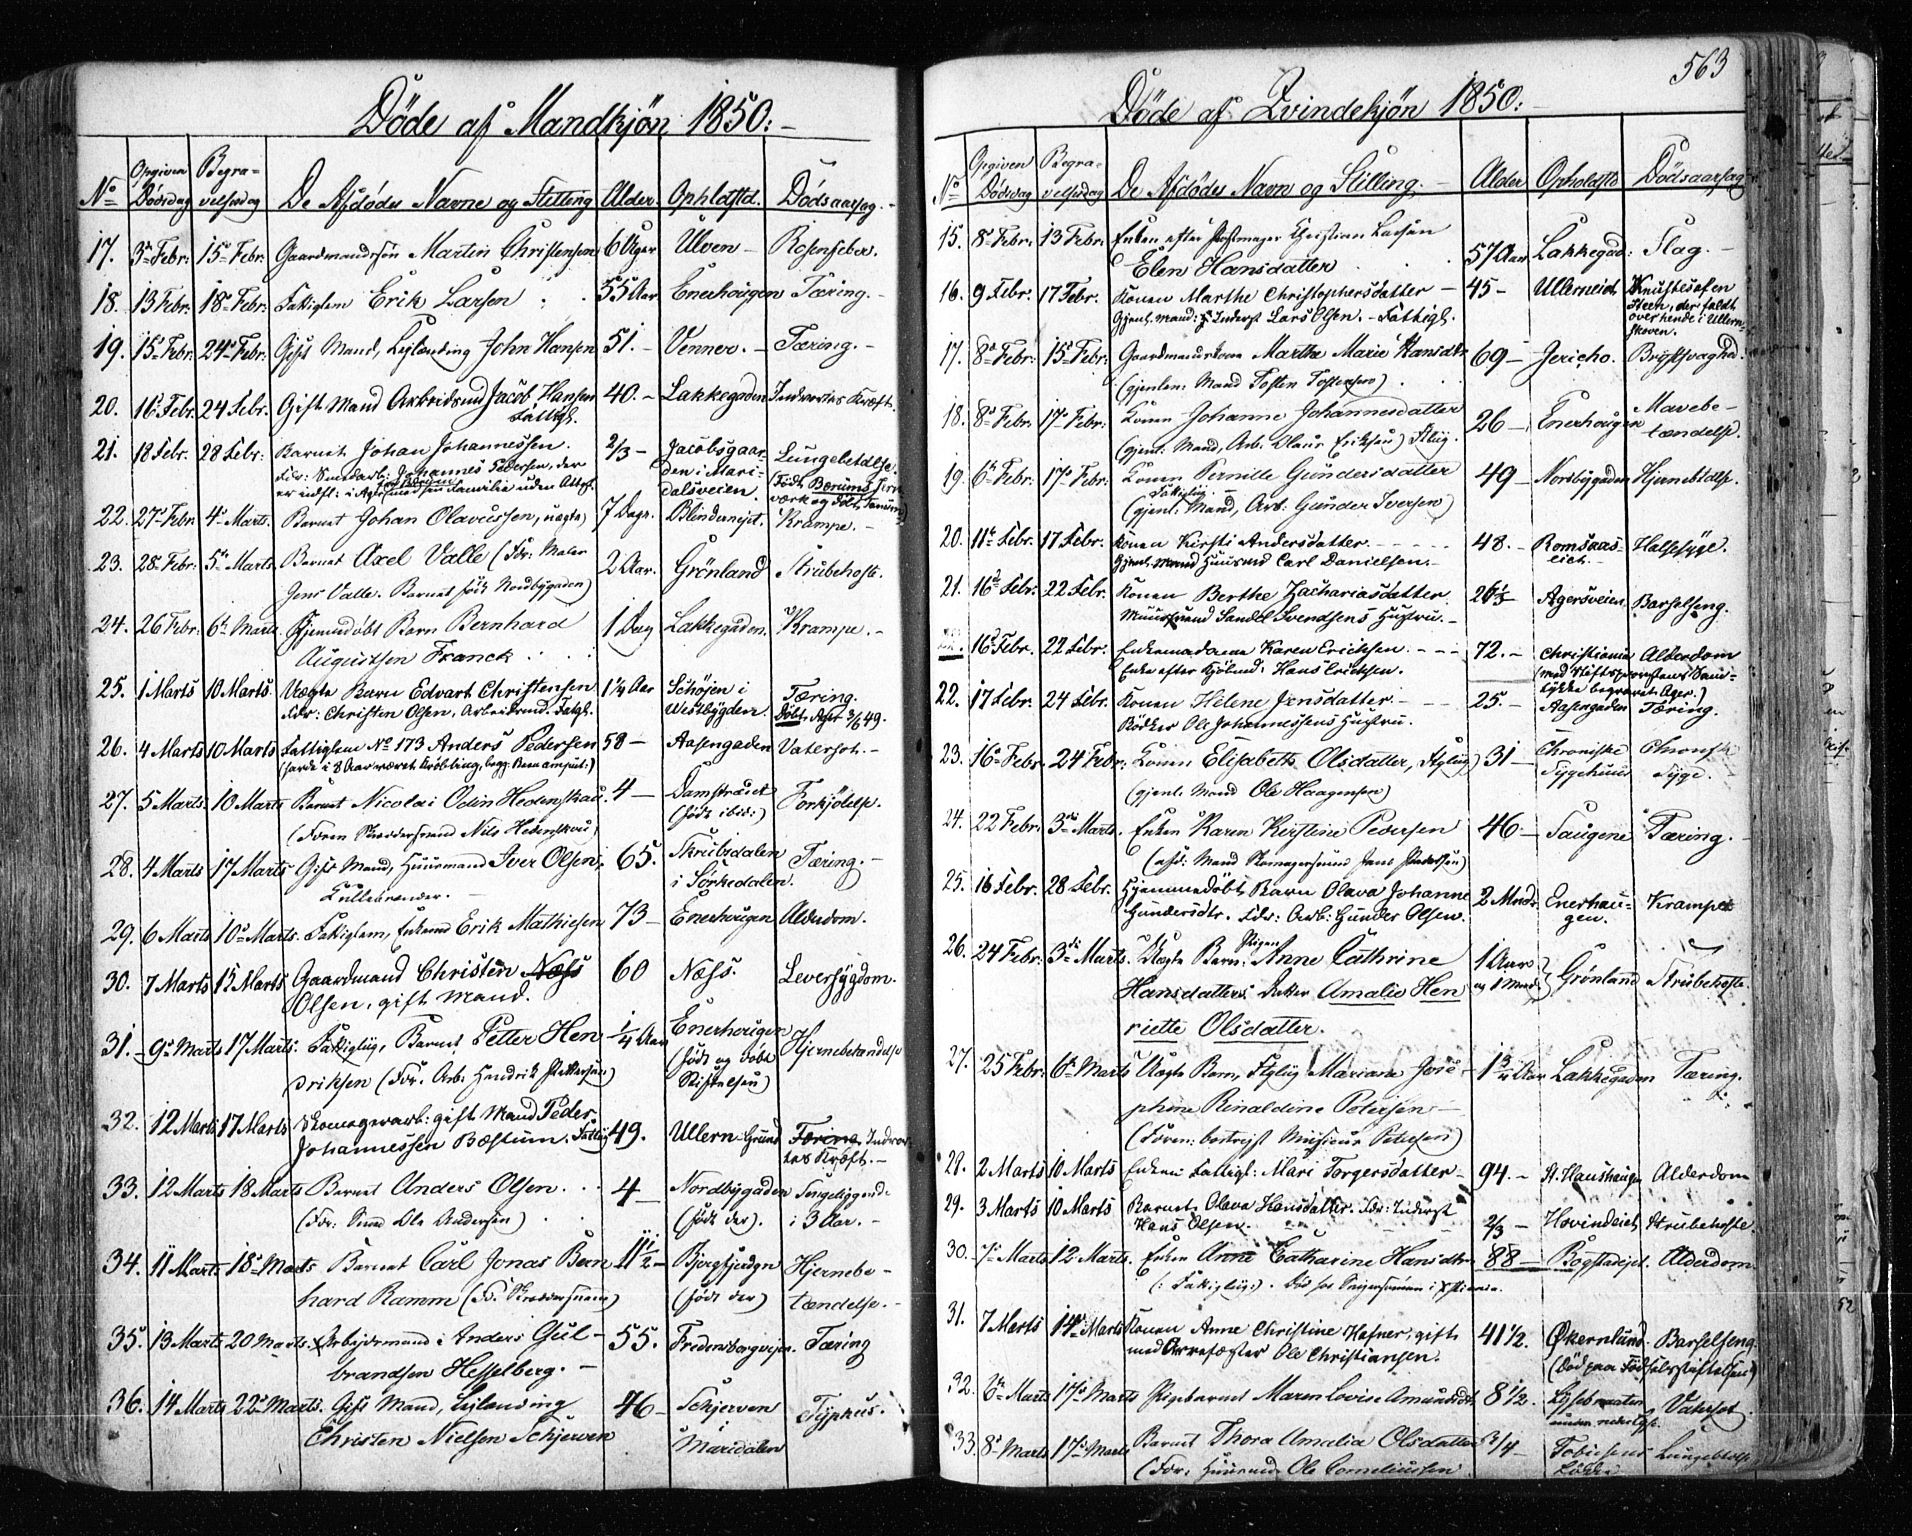 Döde af Mandkjön 1850:
No Opgiven Dödsdag Begravelsesdag De Afdödes Navne og Stilling Alder Opholdstd. Dödsaarsag.
17. 3 Febr. 15 Febr. Gaardmandssön Martin Christensen 6 Uger Ulven Rosenfeber.
18. 13 Febr. 18 Febr. Fattiglem Erik Larsen 55 Aar Enerhougen Tæring.
19. 15 Febr. 24 Febr. Gift Mand, Leilænding John Hansen 51. Venner. Tæring.
20. 16 Febr. 24 Febr. Gift Mand Arbeidsmd Jacob Hansen 40. Lakkegaden Indvortes Kræft.
Fattigl.
21. 18 Febr. 28 Febr. Barnet Johan Johannessen. 2/3 Jacobsgaarden i Maridalsveien. Lungebetdlse.
Fdr: Smedarb: Johannes Pedersen, der
er indfl: i Ager med sin Familie uden Attest. (Födt Bærums Jernværk og döbt Tanum)
22. 27 Febr. 4 Marts. Barnet Johan Olavussen, uægte 7 Dage. Blindernejet. Krampe.
23. 28 Febr. 5 Marts. Barnet Axel Valle (Fdr: Maler 2 Aar. Grönland Strubehoste.
Jens Valle. Barnet födt Nordbygaden)
24. 26 Febr. 6 Marts Hjemmedöbt Barn Bernhard 1 Dag Lakkegaden. Krampe.
Augustsen Franck
25. 1 Marts 10 Marts Uægte Barn Edvart Christensen 1 1/4 Aar Schöjen i Westbygden. Tæring.
Fdr: Christen Olsen, Arbeidsmd. Fatgl. Döbt Ager 3/6 49.
26. 4 Marts 10 Marts Fattiglem No 173 Anders Pedersen 58 Aasengaden Vatersot.
(havde i 8 Aar været Kröbling, begg: Ben amput:)
27. 5 Marts. 10 Marts Barnet Nicolai Odin Hedenskou. 4 Damstrædet Forkjölelse.
(Faren Skræddersvend Nils Hedenskou) (födt ibid:)
28. 4 Marts 17 Marts Gift Mand, Huusmand Iver Olsen, 65. Skrubsdalen i Sörkedalen. Tæring.
Kullebrænder.
29. 6 Marts 10 Marts. Fattiglem, Enkemd Erik Mathiesen 73 Enerhougen Alderdom.
30. 7 Marts 15 Marts Gaardmand Christen Næss 60 Næss. Leversygdom.
Olsen, gift Mand.
31. 9 Marts 17 Marts. Fattiglig, Barnet Petter Hen 1/4 Aar Enerhougen Hjernebetændelse
driksen (Fdr. Arb: Hendrik Pettersen) (födt og döbt Stiftelsen)
32. 12 Marts 17 Marts Skomagerarb: gift Mand Peder 49. Ullern Grund Tæring Indvortes Kræft.
Johannessen Bæstum. Fattig
33. 12 Marts 18 Marts Barnet Anders Olsen. 4 Nordbygaden Sengeliggende
(Fdr: Smed Ole Andersen) (födt der). i 3 Aar.
34. 11 Marts 18 Marts Barnet Carl Jonas Bern 11 1/2 Bjergfjerdgn Hjernebe-
hard Ramm (Fd. Skræddersvend) (födt der) tændelse.
35. 13 Marts 20 Marts Arbejdsmand i Anders Gul- 55. Fredensborgvejen. Tæring
brandsen Hesselberg.
36. 14 Marts 22 Marts. Gift Mand, Leilænding 46 Schjerven i Maridalen Typhus.
Christen Nielsen Schjerven
563
Döde af Qvindekjön 1850:
No Opgiven Dödsdag Begravelsesdag De Afdödes Navn og Stilling. Alder Opholdstd Dödsaarsag
15. 8 Febr. 13 Febr. Enken efter Postmager Christian Larsen 57 Aar Lakkegad: Slag.
Elen Hansdatter
16. 9 Febr. 17 Febr. Konen Marthe Christophersdatter 45 Ullerneid: Knustes af en
Gjenl. Mand: Inderst Lars Olsen. Fattigl. Steen, der faldt over hende i Ullernskoven.
17. 8 Febr. 15 Febr. Gaardmandskone Marthe Marie Hansdtr 69 Jericho. Brystsvaghed.
(gjenlev: Mand Tosten Tostensen)
18. 8 Febr. 17 Febr. Konen Johanne Johannesdatter 26 Enerhougen Mavebe-
(gjenl. Mand, Arb. Olaus Eriksen) Fttig. tændelse.
19. 6 Febr. 17 Febr. Konen Pernille Gundersdatter 49 Nordbygaden Hjernebtdlse.
Fattiglig.
(gjenl: Mand, Arb: Gunder Iversen)
20. 11 Febr. 17 Febr. Konen Kirsti Andersdatter. 48. Romsaas-eiet. Halssyge.
Gjenl. Mand Huusmd Carl Danielsen.
21. 16 Febr. 22 Febr. Konen Berthe Zachariasdatter 26 1/3 Agersveien. Barselseng.
Muursvend Sandel Svendsens Hustru.
16 Febr. 22 Febr. Enkemadame Karen Erichsen. 72. Christiania Alderdom
Enke efter Kjölmd: Hans Erichsen. (med Stiftsprovstens Samtykke begravet Ager.)
22. 17 Febr. 24 Febr. Konen Helene Jensdatter. 25. Aasengaden Tæring.
Bödker Ole Johannessens Hustru.
23. 16 Febr. 24 Febr. Konen Elisabeth Olsdatter, Ftglig 31 Chroniske Sygehuus Chronisk Syge.
(gjenl. Mand Ole Haagensen)
24. 22 Febr. 3 Marts. Enken Karen Kirstine Pedersen 46 Saugene Tæring.
(afd: Mand Skomagersvend Jens Pedersen)
25. 16 Febr. 28 Febr. Hjemmedöbt Barn Olava Johanne 2 Mndr. Enerhaugen. Krampe
Gundersdtr. Fdr: Arb: Gunder Olsen.
26. 24 Febr. 3 Marts. Uægte Barn: Pigen Anne Cathrine 1 Aar og 1 Mnd. Grönland Strubehoste.
Hansdatters Datter Amalie Hen
riette Olsdatter.
27. 25 Febr. 6 Marts Uægte Barn, Ftglig Mariane Jose- 1 3/4 Aar Lakkegaden Tæring.
phine Rinaldine Petersen
(Faren: bortrejst Musicus Petersen)
28. 2 Marts 10 Marts Enken: Fattigl: Mari Torgersdatter 94. St. Haushaugen Alderdom
29. 3 Marts 10 Marts Barnet Olava Hansdatter. Fdr: Inderst 2/3 Hovindeiet Strubehoste.
Hans Olsen.
30. 7 Marts 12 Marts. Enken Anne Catharine Hansdtr. 88 Bogstadejet. Alderdom.
(: Fattiglig:)
31. 7 Marts 14 Marts Konen Anne Christine Hafner, gift 41 1/2. Økernlund. Barselseng
med Ole Christiansen. (Död paa Födselsstiftelsen)
32. 6 Marts 17 Marts Pigebarnet Maren Lovise Amundsdt. 8 1/2. Vatersot.
33. 8 Marts 17 Marts Barnet Thora Amalia Olsdatter 3/4 Tobiesens Lökke Lungebtdlse
(Fdr: Huusmd Ole Corneliussen